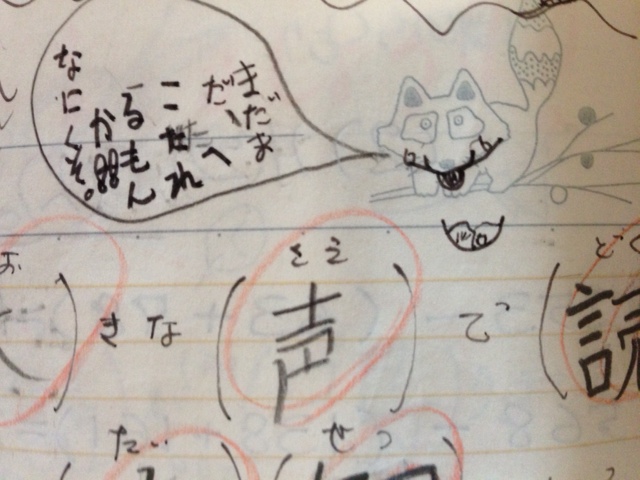 まだま
だ、へ
こたれ
るもん
か!!
なにくそ。
お こえ どく
きな(声)で(読
たい せつ